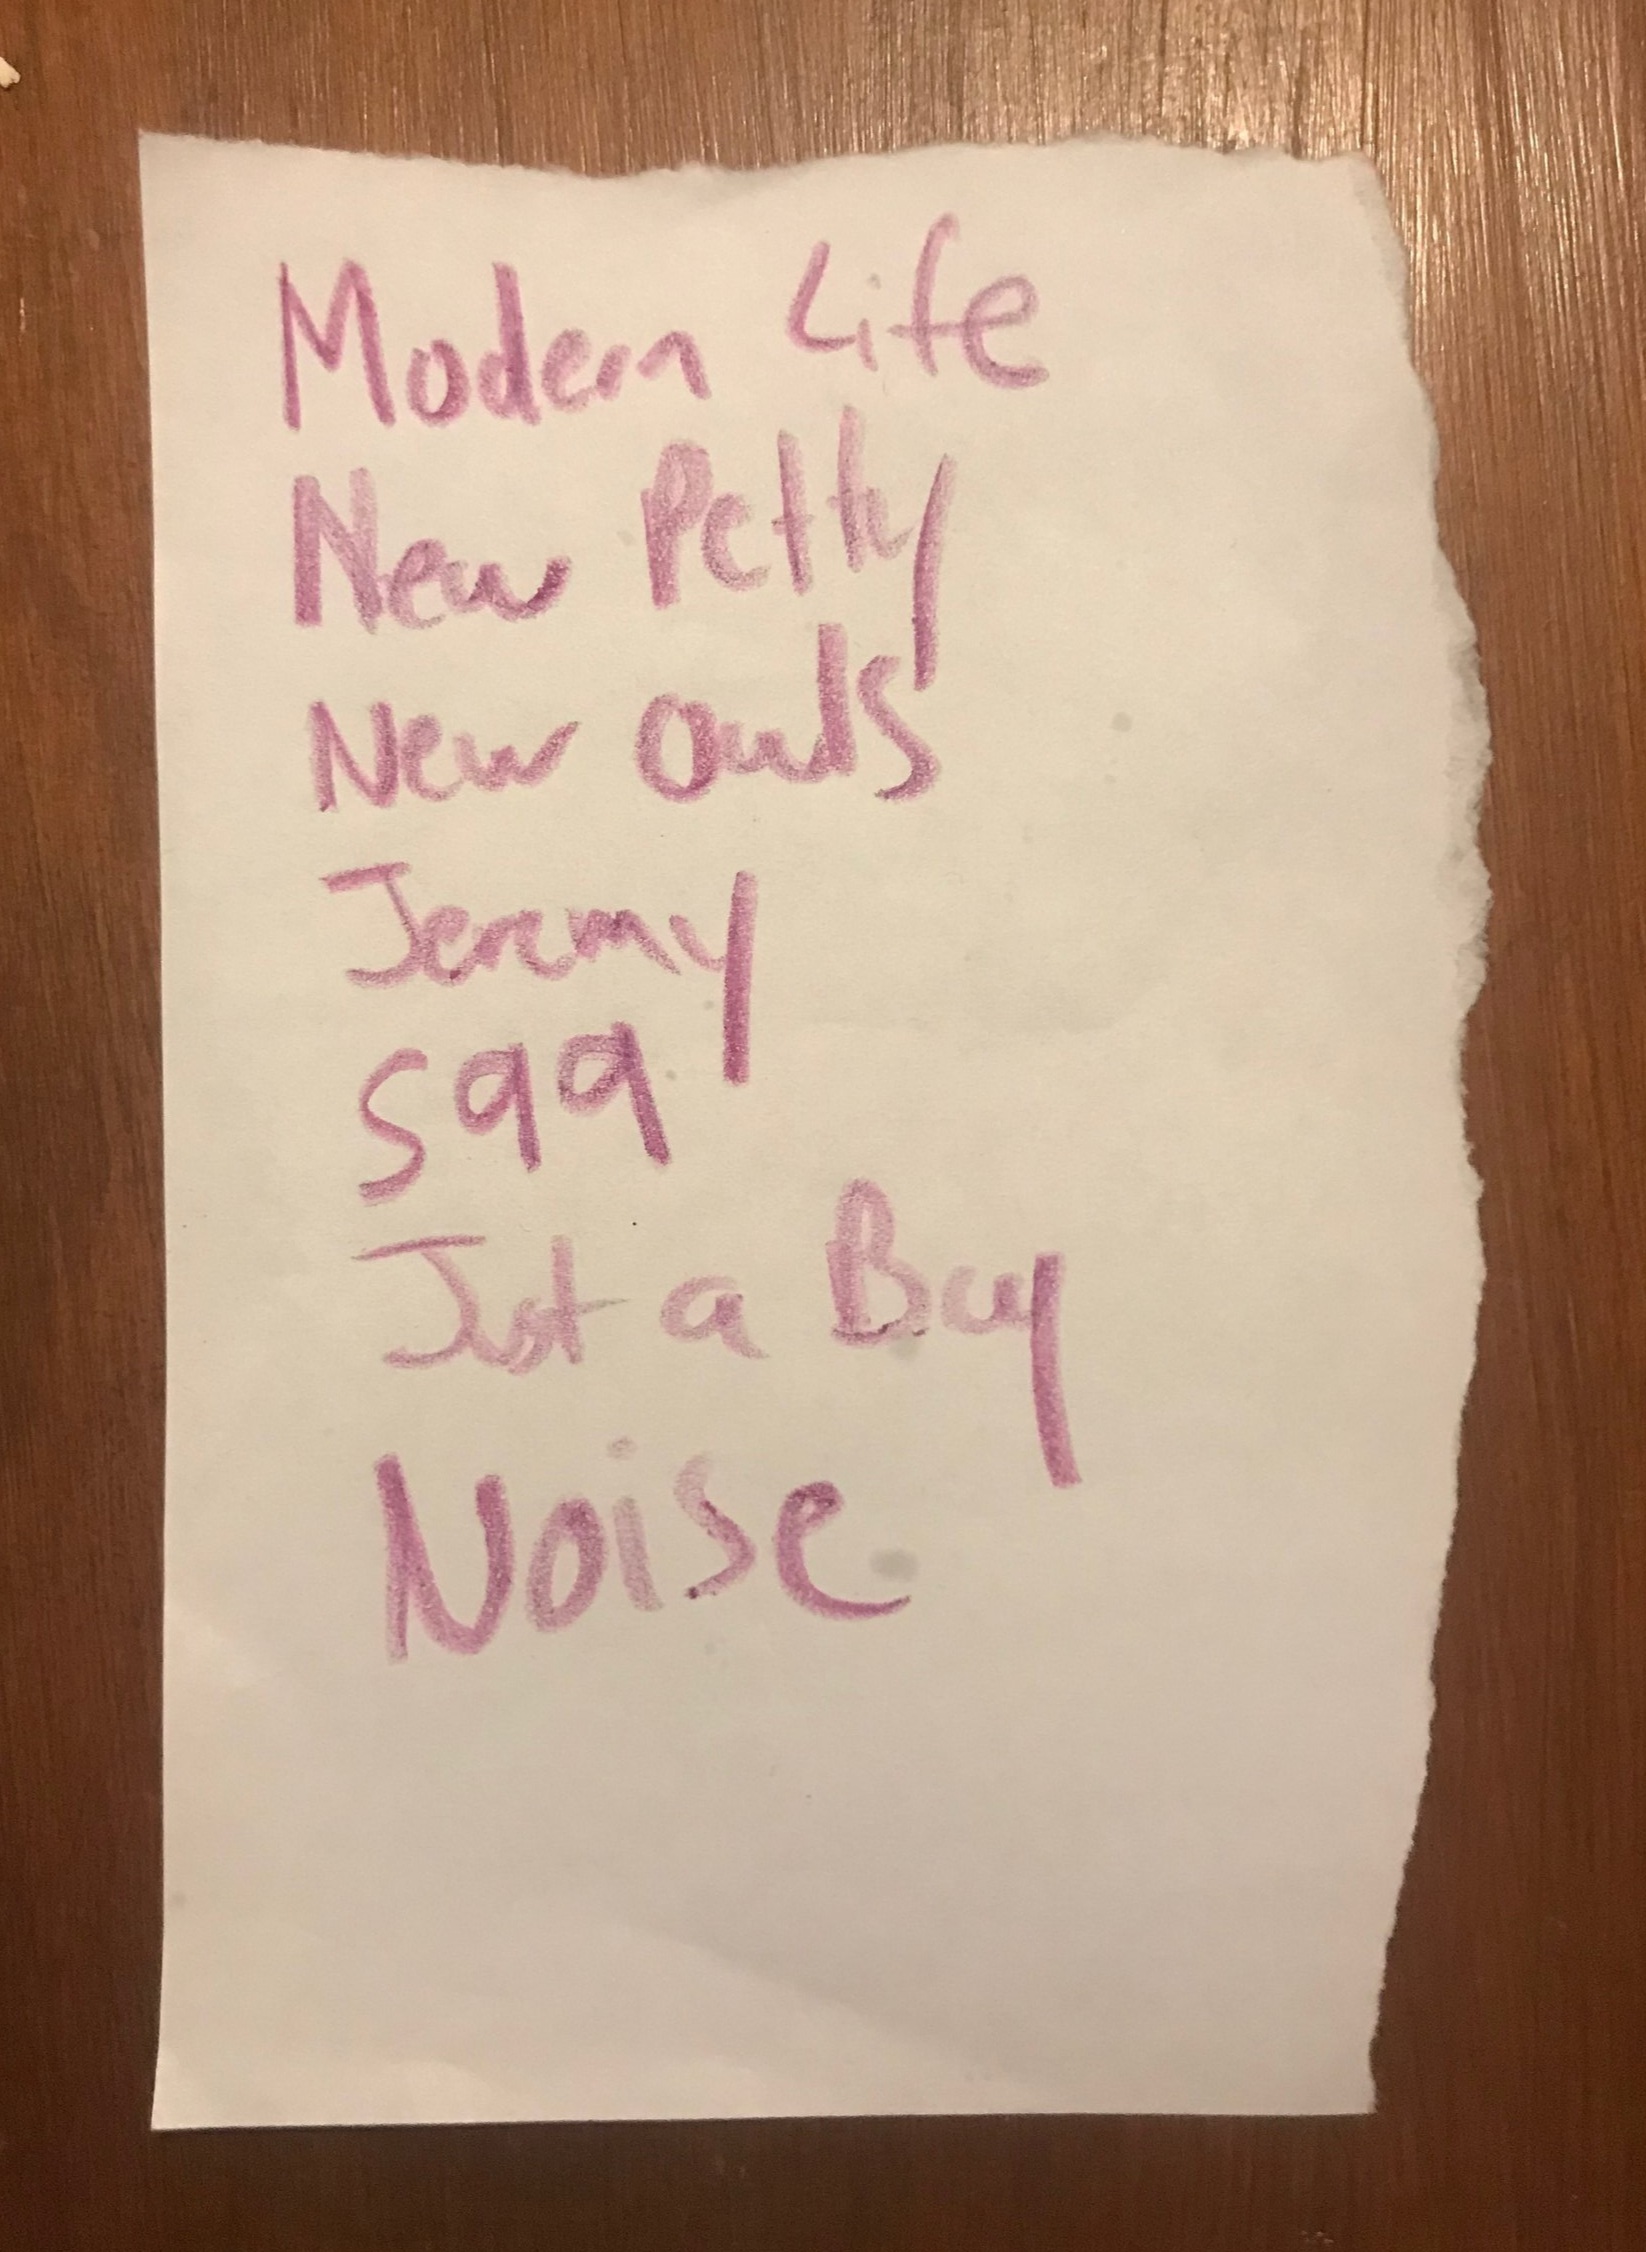 Modern Life
New Petty
New Owls
Jeremy
S99
Just a Boy
Noise